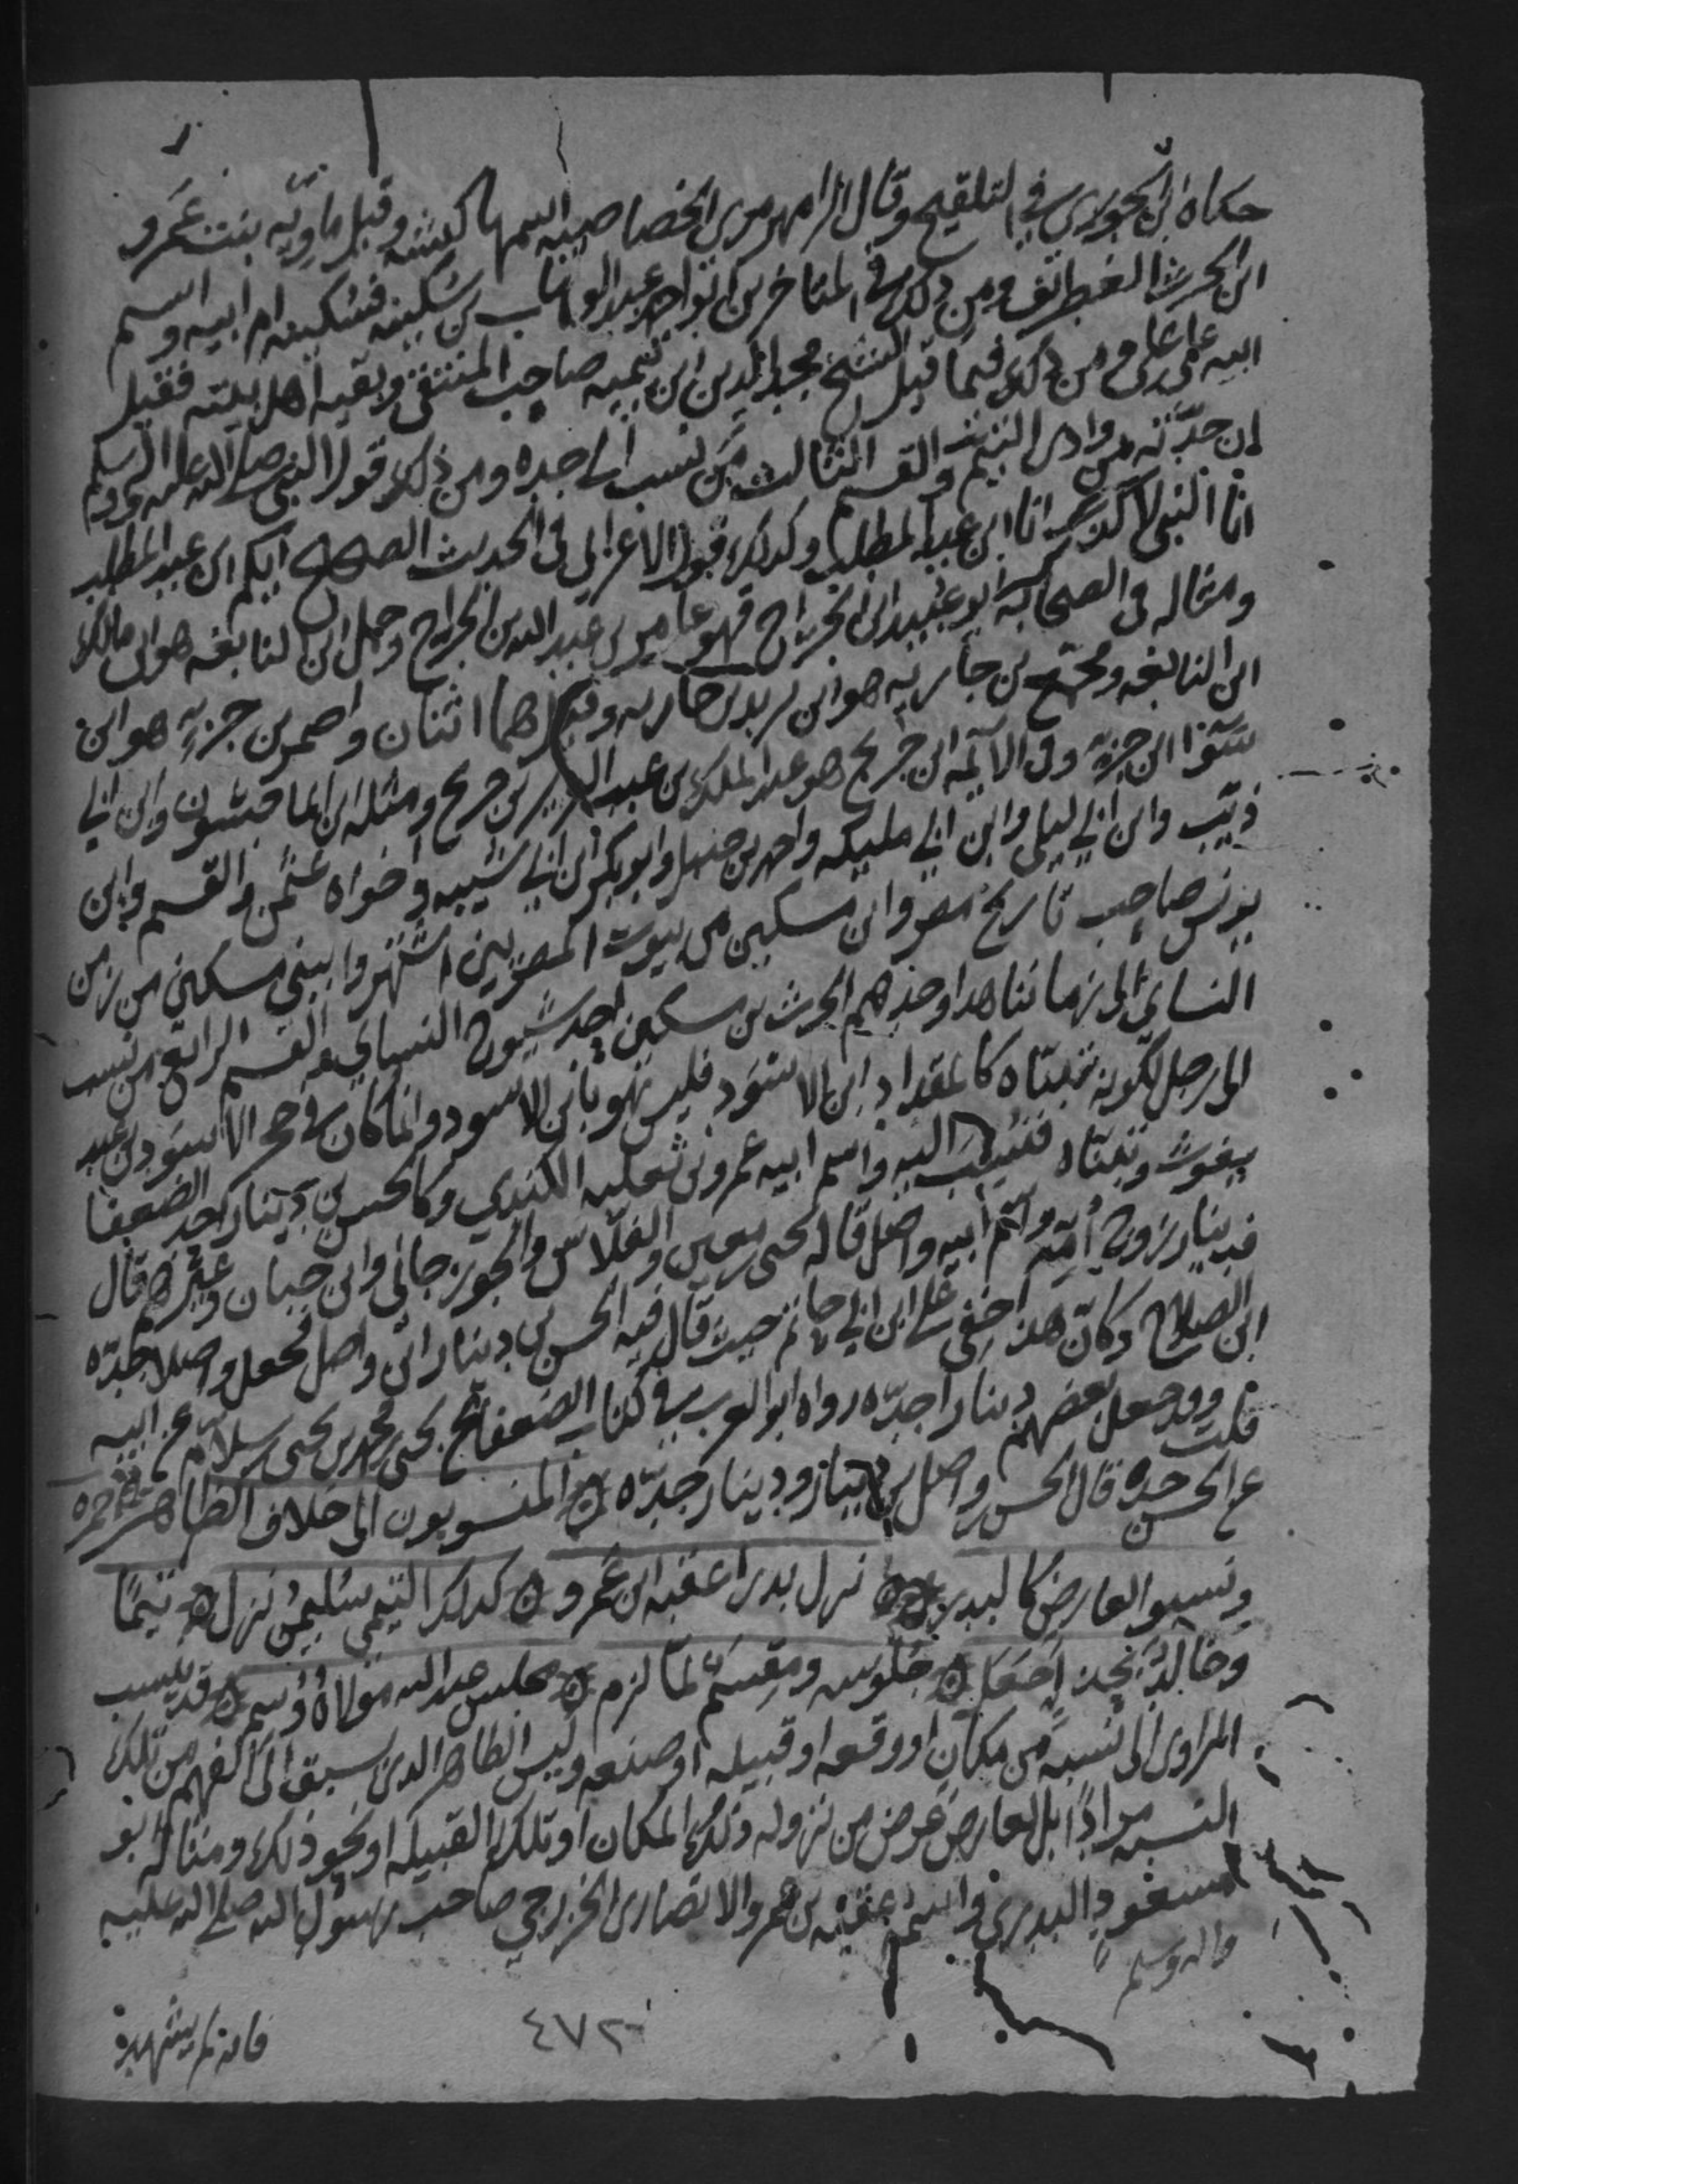 حكاه ابن الجوزي في التلقيح وقال الرامهرمزي الخصاصية اسمها كبشه وقيل ماويّه بنت عَمرو
ابن الحرث الغطريف ومن ذلك في المتاخرين ابو احمد عبد الوهاب بن سُكَينه فسُكينه ام ابيه واسم
ابيه علي بن علي ومن ذلك فيما قيل الشيخ مجد الدين ابن تيميه صاحب المنتقى وبقيه اهل بيته فقيل
ان جدّته من وادي التيم والقسم الثالث من نسب الى جده ومن ذلك قول النبي صلى الله عليه واله وسلم
انا النبي لا كذب انا ابن عبد المطلب وكذلك قول الاعرابي في الحديث الصحيح ايكم ابن عبد المطلب
ومثاله في الصحابه ابو عُبَيد ابن الجرّاح فهو عامر بن عبد الله بن الجراح وحمل ابن النابغه هو ابن مالك
ابن النابغه ومجمّع بن جاريه هو ابن يزيد بن جاريه وقيل هما اثنان واحمر بن جزء هو ابن
سَوَا ابن جزء وفي الائمه ابن جريج هو عبد الملك بن عبد العزيز بن جريج ومثله ابن الماجشون وابن ابي
ذئب وابن ابي ليلى وابن ابي مليكه واحمد بن حنبل وابو بكر ابن ابي شيبه واخواه عثمن والقسم وابن
يونس صاحب تاريخ مصر وابن مسكين من بيوت المصريين اشتهروا ببني مسكين من زمن
النساي الى زماننا هذا وجدهم الحرث بن مسكين احد شيوخ النساي القسم الرابع من نسب
الى رجل لكونه تبنّاه كالمقداد ابن الاسَود فليس هو بابن الاسود وانما كان في حجر الاسود بن عبد
يغوث وتبنّاه فنُسِبَ اليه واسم ابيه عمرو بن ثعلبه الكندي وكالحسن بن دينار احد الضعفا
فدينار زوج أمّه واسم ابيه واصل قاله يحيى بن معين والفلّاس والجوزجاني وابن حبان وغيرهم قال
ابن الصلاح وكانّ هذا خفي على ابن ابي حاتم حيث قال فيه الحسن بن دينار ابن واصل فجعل واصلا جدّه
قلت وقد جعل بعضهم دينارا جدّه رواه ابو العرب في كتاب الضعفا عن يحيى بن محمد بن يحيى بن سلام عن ابيه
عن جده قال الحسن بن واصل بن دينار ودينار جدّه المنسوبون الى خلاف الظاهر
ونسبوا لعارض كالبدري نزل بدرا عقبه ابن عَمرو كذلك التيمي سُليمن نزل تيمًا
وخالدٌ بحذاء جُعل جلوسه ومِقسَم لما لزم مجلس عبد الله مولاه وُسِم قد ينسب
الراوي الى نسبه من مكان او وقعه او قبيله او صنعه وليس الظاهر الذي سبق الى الفهم من تلك
النسبه مرادًا بل لعارض عرض من نزوله ذلك المكان او تلك القبيله او نحو ذلك ومثاله ابو
مسعود البدري واسمه عقبه بن عمرو الانصاري الخزرجي صاحب رسول الله صلى الله عليه
واله وسلم
فانه لم يشهد
٤٧٢